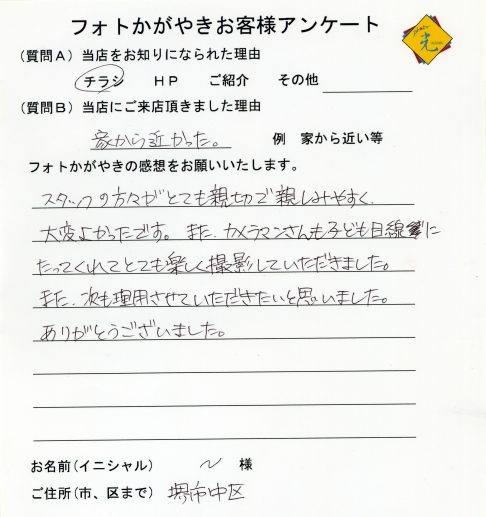 フォトかがやきお客様アンケート
光
(質問A)当店をお知りになられた理由
チラシ HP ご紹介 その他
(質問B)当店にご来店頂きました理由
家から近かった。 例 家から近い等
フォトかがやきの感想をお願いいたします。
スタッフの方々がとても親切で親しみやすく、
大変よかったです。また、カメラマンさんも子ども目線に
たってくれてとても楽しく撮影していただきました。
また、次も理用させていただきたいと思いました。
ありがとうございました。
お名前(イニシャル) N 様
ご住所(市、区まで) 堺市中区